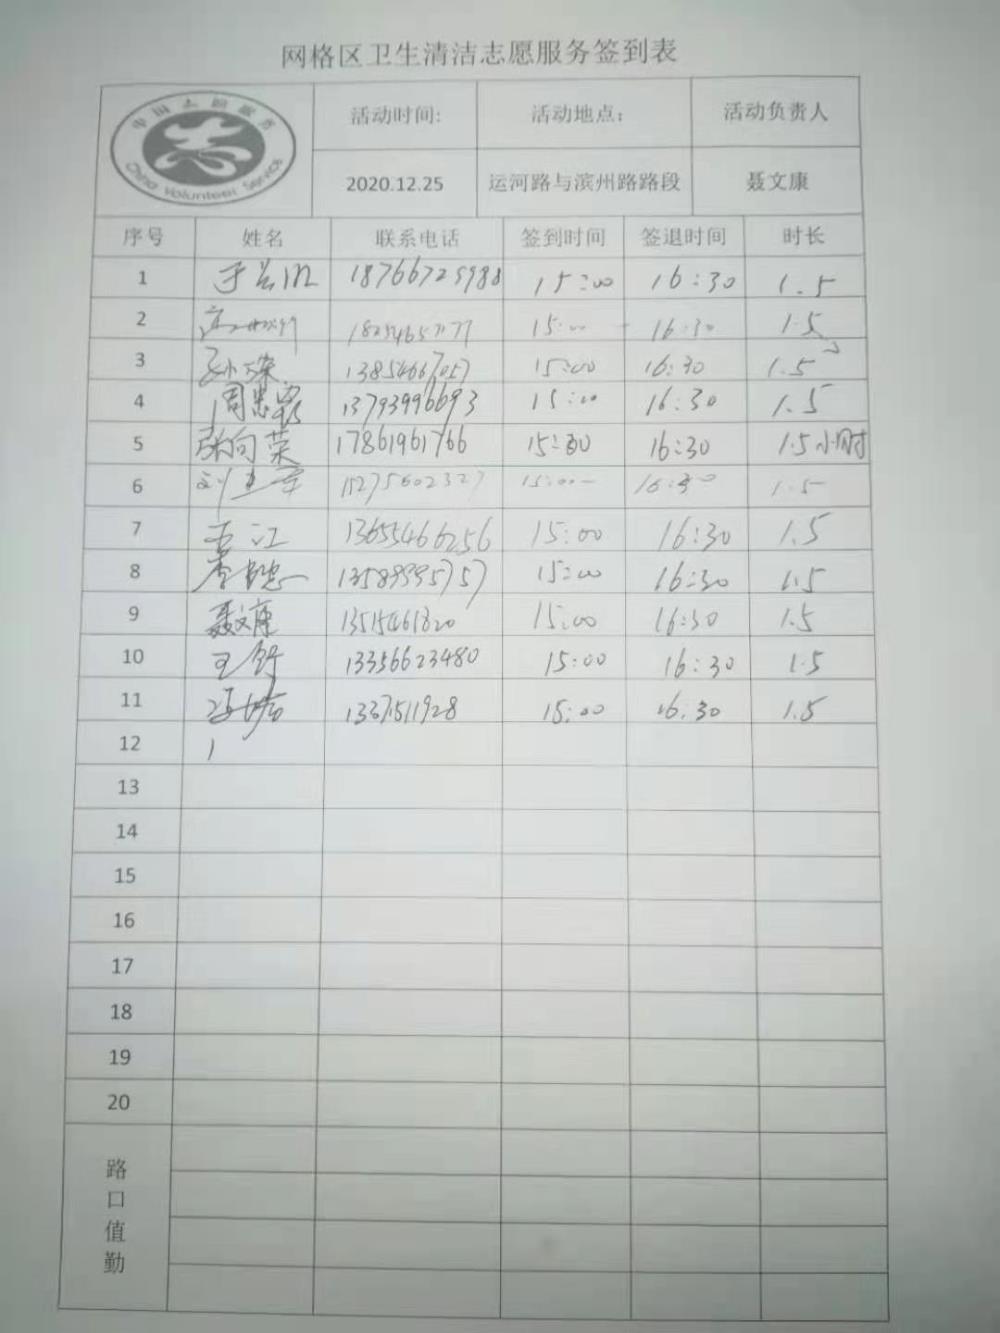 网格区卫生清洁志愿服务签到表
中国志愿服务
China Volunteer Service
活动时间: 活动地点: 活动负责人
2020.12.25 运河路与滨州路路段 聂文康
序号 姓名 联系电话 签到时间 签退时间 时长
1 18766725988 15:00 16:30 1.5
2 15:00 16:30 1.5
3 13854667057 15:00 16:30 1.5
4 13793996693 15:00 16:30 1.5
5 张向荣 17861961766 15:30 16:30 1.5小时
6 15275602327 15:00 16:30 1.5
7 13655466256 15:00 16:30 1.5
8 13589995757 15:00 16:30 1.5
9 聂文康 13515461820 15:00 16:30 1.5
10 王舒 13356623480 15:00 16:30 1.5
11 15:00 16:30 1.5
12
13
14
15
16
17
18
19
20
路
口
值
勤